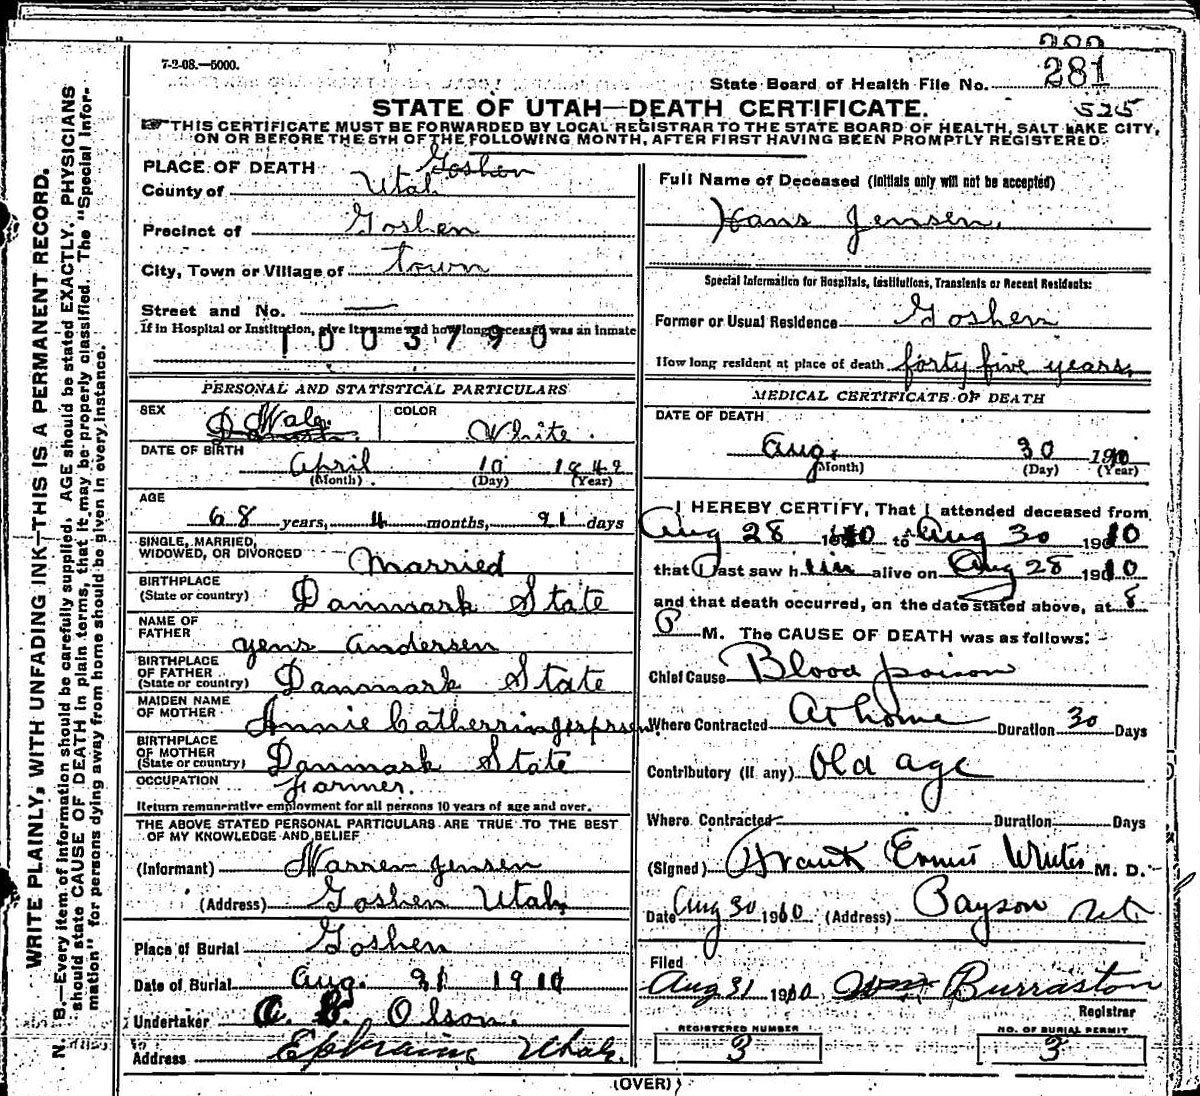 282
7-2-08.—5000.
State Board of Health File No. 281
525
STATE OF UTAH—DEATH CERTIFICATE.
THIS CERTIFICATE MUST BE FORWARDED BY LOCAL REGISTRAR TO THE STATE BOARD OF HEALTH, SALT LAKE CITY,
ON OR BEFORE THE 5TH OF THE FOLLOWING MONTH, AFTER FIRST HAVING BEEN PROMPTLY REGISTERED.
WRITE PLAINLY, WITH UNFADING INK—THIS IS A PERMANENT RECORD.
N. B.—Every item of information should be carefully supplied. AGE should be stated EXACTLY. PHYSICIANS
should state CAUSE OF DEATH in plain terms, that it may be properly classified. The "Special Infor-
mation" for persons dying away from home should be given in every instance.
PLACE OF DEATH Goshen
County of Utah
Precinct of Goshen
City, Town or Village of Town
Street and No. —
If in Hospital or Institution, give its name and how long deceased was an inmate
1003790
PERSONAL AND STATISTICAL PARTICULARS
SEX Male
COLOR White.
DATE OF BIRTH
April 10 1842
(Month) (Day) (Year)
AGE
68 years, 4 months, 21 days
SINGLE, MARRIED,
WIDOWED, OR DIVORCED Married
BIRTHPLACE
(State or country) Danmark State
NAME OF
FATHER yens andersen
BIRTHPLACE
OF FATHER
(State or country) Danmark State
MAIDEN NAME
OF MOTHER Annie Catherrin
BIRTHPLACE
OF MOTHER
(State or country) Danmark State
OCCUPATION Farmer.
Return remunerative employment for all persons 10 years of age and over.
THE ABOVE STATED PERSONAL PARTICULARS ARE TRUE TO THE BEST
OF MY KNOWLEDGE AND BELIEF
(Informant) Warren Jensen
(Address) Goshen Utah,
Place of Burial Goshen
Date of Burial Aug. 31 1910
Undertaker Olson.
Address Ephraim Utah.
Full Name of Deceased (Initials only will not be accepted)
Hans Jensen.
Special Information for Hospitals, Institutions, Transients or Recent Residents:
Former or Usual Residence Goshen
How long resident at place of death forty five years,
MEDICAL CERTIFICATE OF DEATH
DATE OF DEATH
Aug. 30 1910
(Month) (Day) (Year)
I HEREBY CERTIFY, That I attended deceased from
Aug 28 1910 to Aug 30 1910
that I last saw him alive on Aug 28 1910
and that death occurred, on the date stated above, at 8
P M. The CAUSE OF DEATH was as follows:
Chief Cause Blood poison
Where Contracted At home Duration 30 Days
Contributory (if any) Old age
Where Contracted Duration Days
(Signed) Frank M. D.
Date Aug 30 1910 (Address) Payson Ut.
Filed
Aug 31 1910 Wm Burraston
Registrar
REGISTERED NUMBER
3
NO. OF BURIAL PERMIT
3
(OVER)